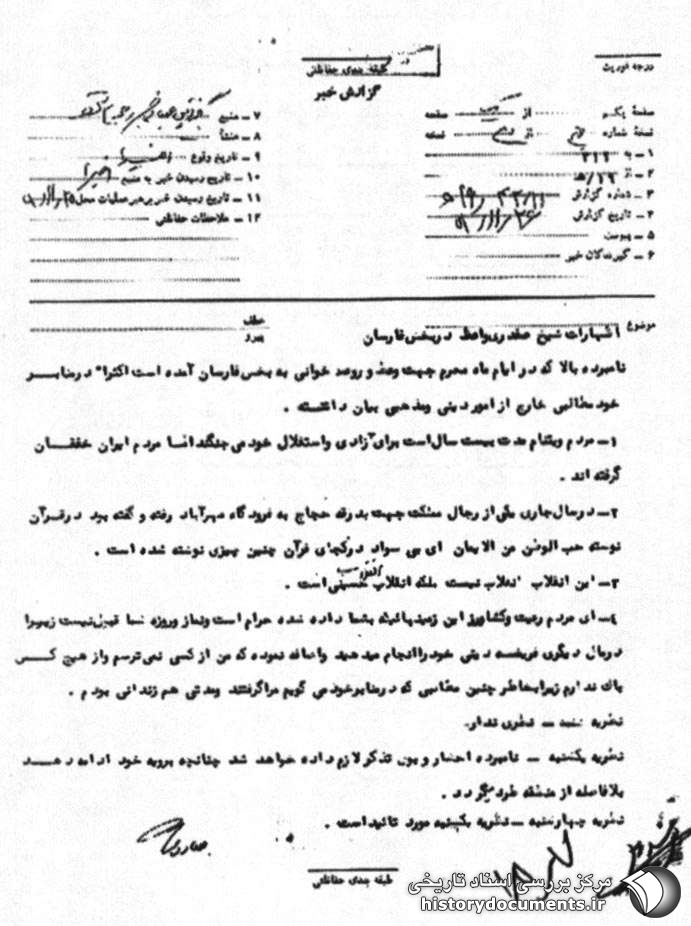 درجه فوریت
طبقه بندی حفاظتی
گزارش خبر
صفحه یکم از یک صفحه
نسخه شماره از نسخه
۱ – به ۳۱۲
۲ – از
۳ – شماره گزارش
۴ – تاریخ گزارش
۵ – پیوست
۶ – گیرندگان خبر
۷ – منبع
۸ – منشأ
۹ – تاریخ وقوع اخیرا
۱۰ – تاریخ رسیدن خبر به منبع اخیرا
۱۱ – تاریخ رسیدن خبر برهبر عملیات محل
۱۲ – ملاحظات حفاظتی
موضوع اظهارات شیخ صفدری واعظ در بخش فارسان
عطف
پیرو
نامبرده بالا که در ایام ماه محرم جهت وعظ و روضه خوانی به بخش فارسان آمده است اکثرا" در منابر
خود مطالبی خارج از امور دینی و مذهبی بیان داشته .
۱– مردم ویتنام مدت بیست سال است برای آزادی و استقلال خود می جنگند اما مردم ایران خفقان
گرفته اند .
۲– در سال جاری یکی از رجال مملکت جهت بدرقه حجاج به فرودگاه مهرآباد رفته و گفته بود در قرآن
نوشته حب الوطن من الایمان ای بی سواد در کجای قرآن چنین چیزی نوشته شده است .
۳– این انقلاب انقلاب نیست بلکه انقلاب است .
۴– ای مردم رعیت و کشاورز این زمینهائیکه بشما داده شده حرام است و نماز و روزه شما قبول نیست زیرا
در مال دیگری فریضه دینی خود را انجام میدهید و اضافه نموده که من از کسی نمی ترسم و از هیچ کس
باک ندارم زیرا بخاطر چنین مطالبی که در منابر خود می گویم مرا گرفتند و مدتی هم زندانی بودم .
نظریه شنبه – نظری ندارد.
نظریه یکشنبه – نامبرده احضار و بوی تذکر لازم داده خواهد شد چنانچه برویه خود ادامه دهد
بلافاصله از منطقه طرد میگردد .
نظریه چهارشنبه – نظریه یکشنبه مورد تائید است .
طبقه بندی حفاظتی
مرکز بررسی اسناد تاریخی
historydocuments.ir